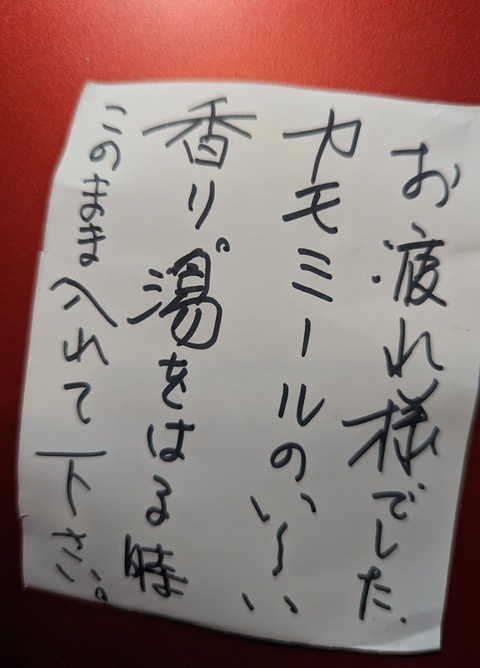 お疲れ様でした.
カモミールのい〜い
香り。湯をはる時
このまま入れて下さい。